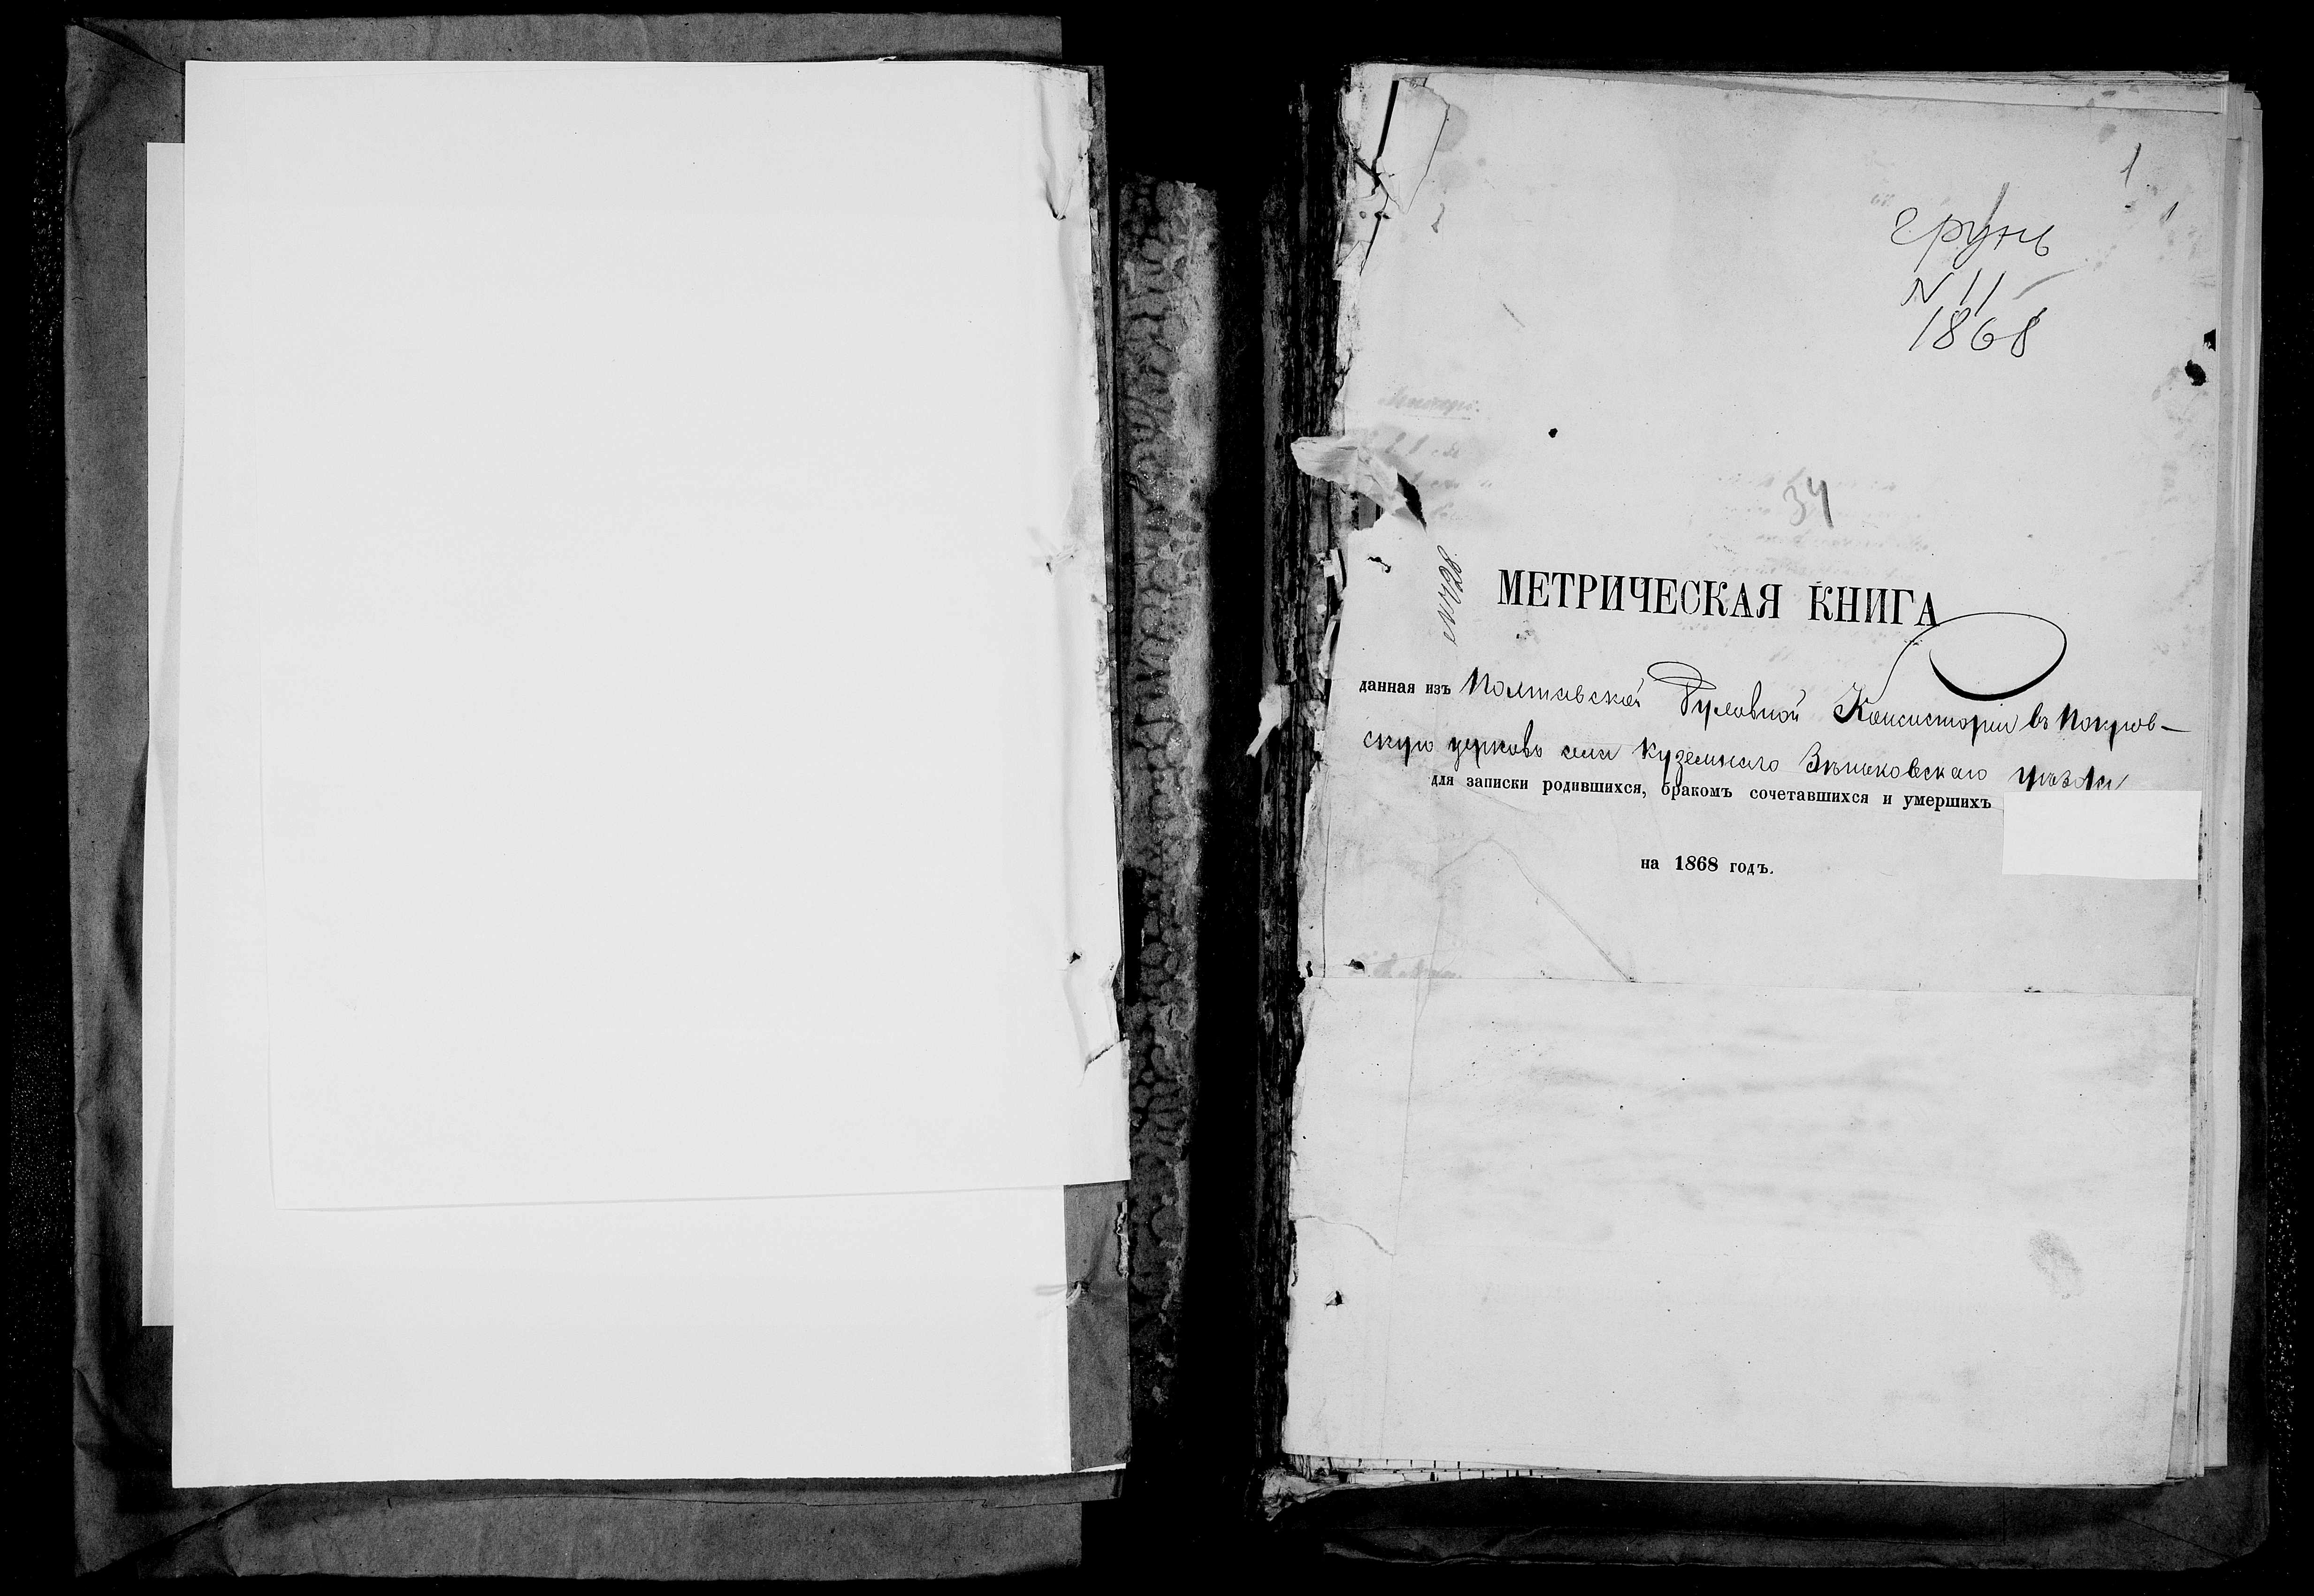 1
1
грунь
N 11
1868
34
МЕТРИЧЕСКАЯ КНИГА
данная изъ Полтавской Духовной Консисторіи въ Покров-
скую церковь села Куземина Зѣньковскаго уѣзда
для записки родившихся, бракомъ сочетавшихся и умершихъ
на 1868 годъ.